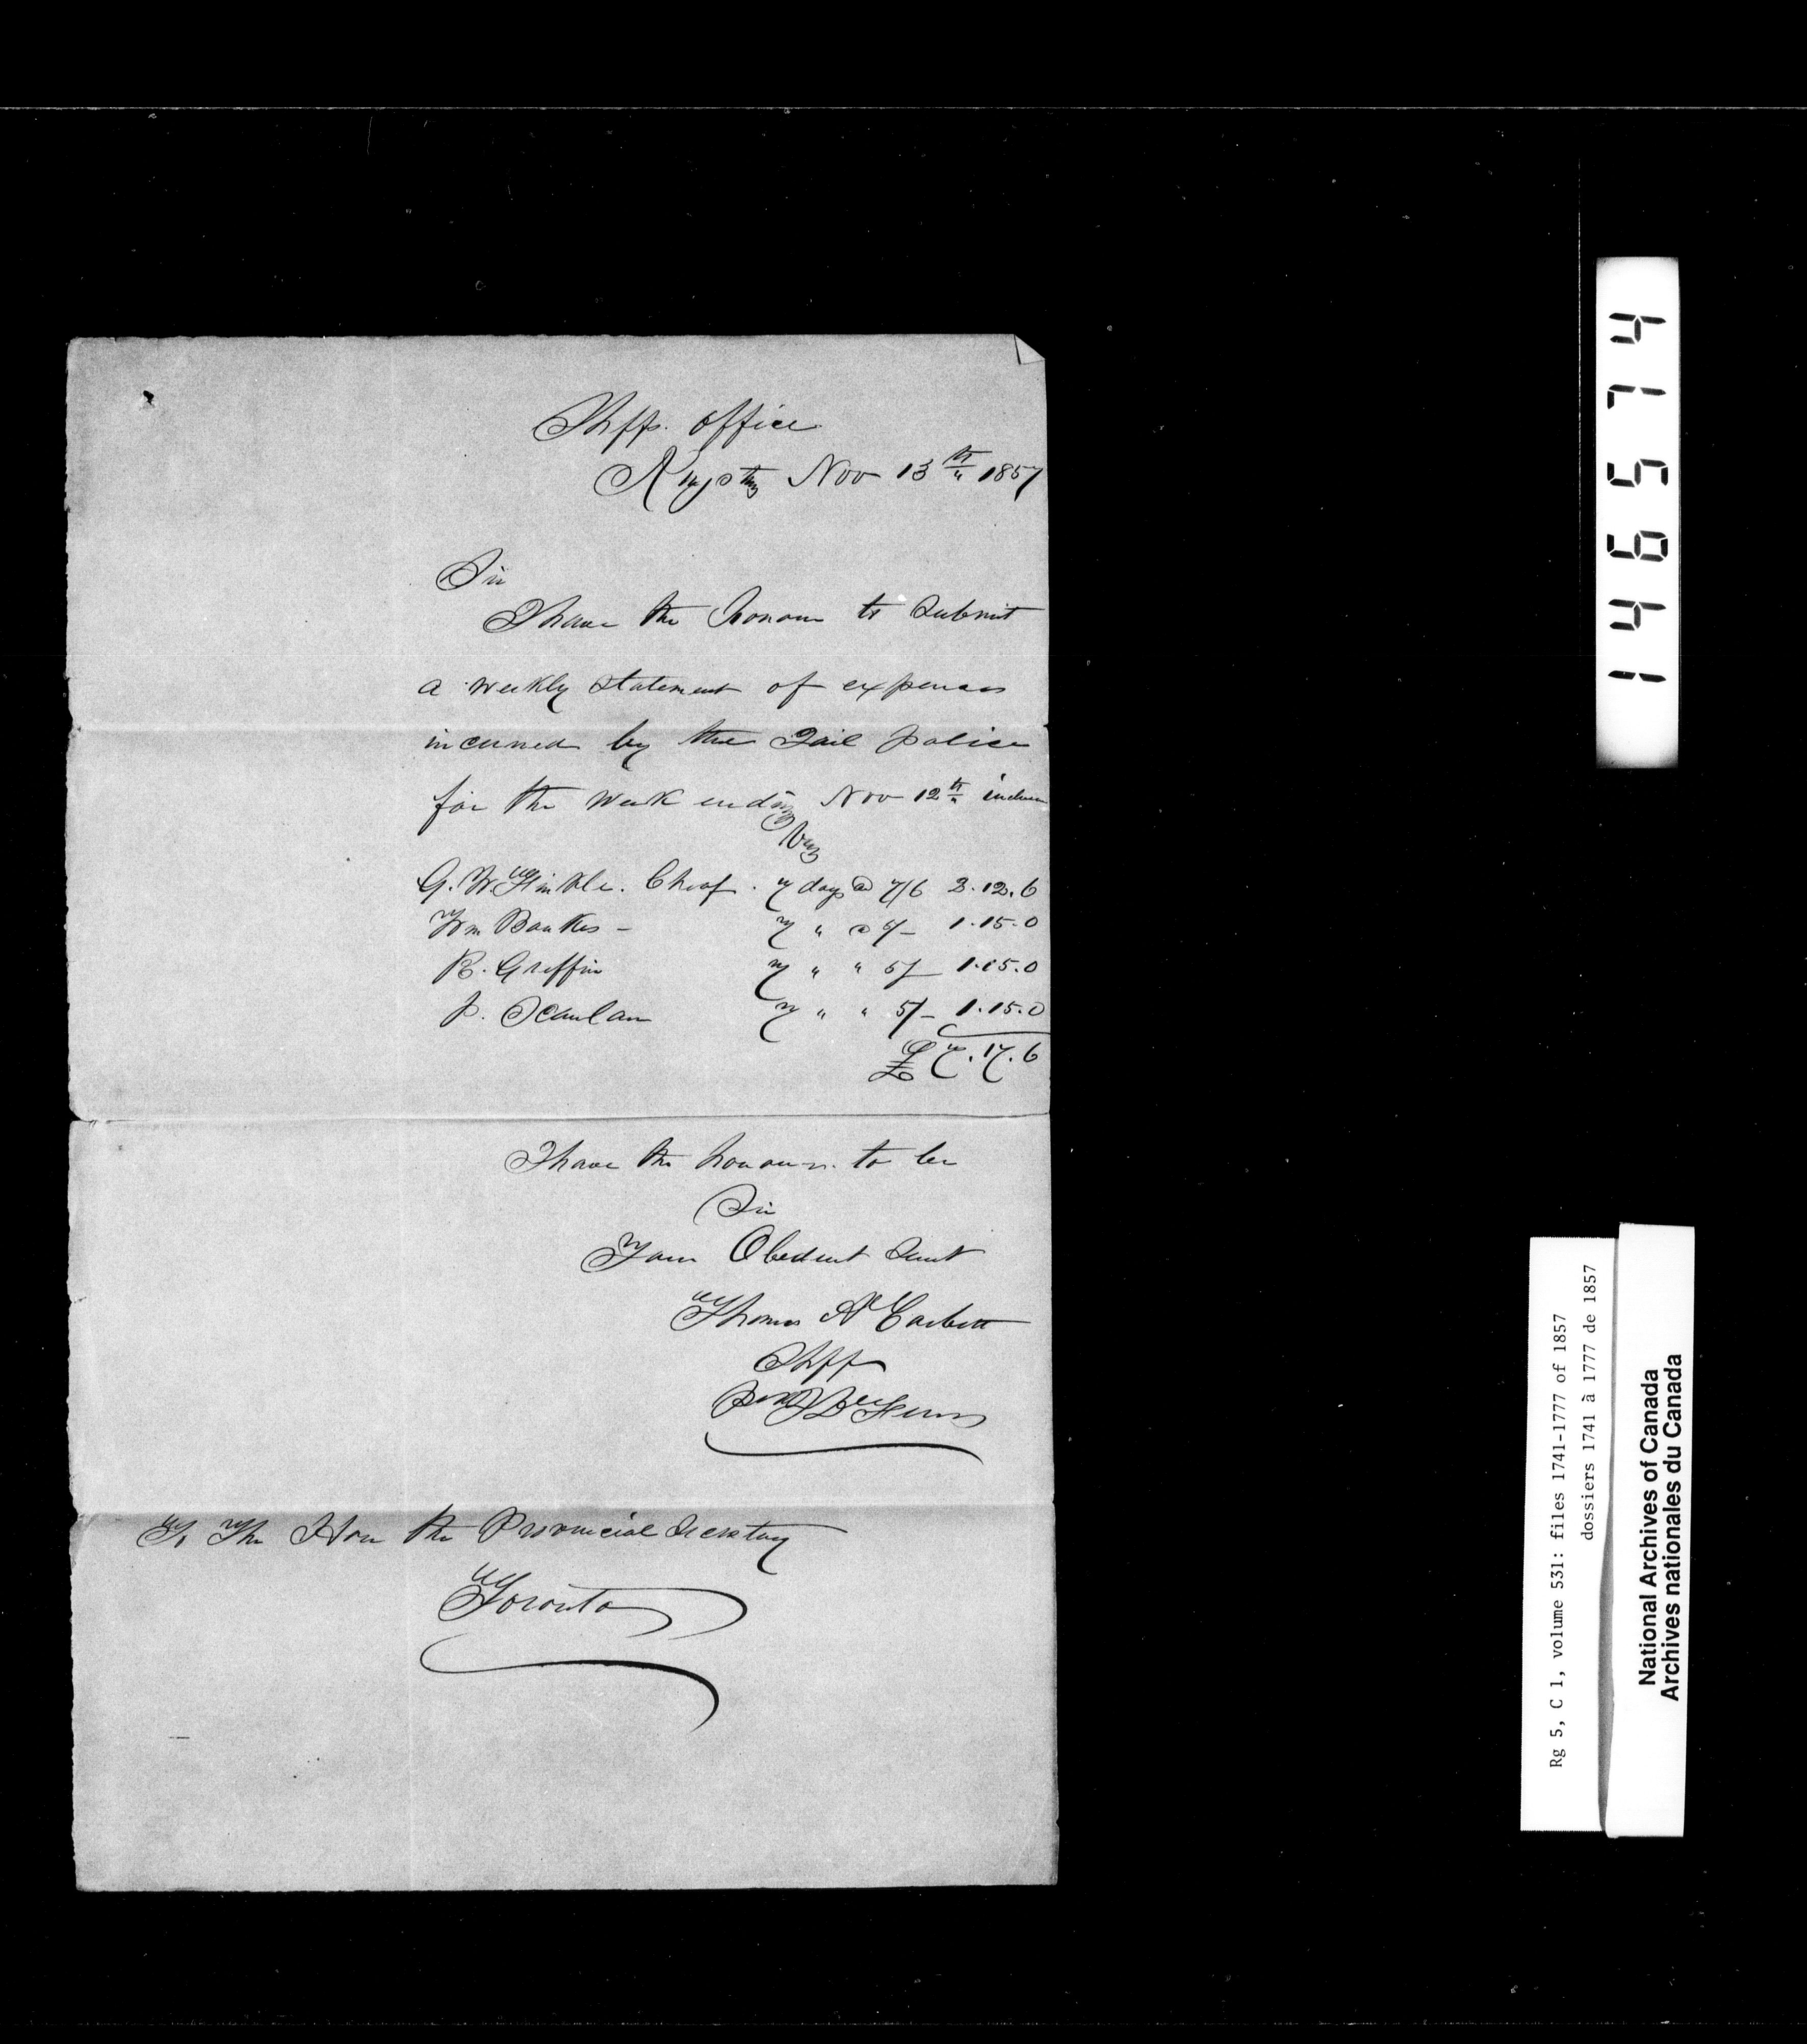 Shff. office
Kingston Nov 13th 1857
Sir
I have the honour to Submit
a weekly statement of expenses
incurred by the Jail police
for the week ending Nov 12th inclusive
Viz
G. W. Chief. 7 days @ 7/6 2.12.6
Wm Bankes - 7 " @ 5/- 1.15.0
R. Griffin 7 " " 5/- 1.15.0
J. Scanlan 7 " " 5/- 1.15.0
£ 7.17.6
I have the honour to be
Sir
Your Obedient Servt
Thomas A Corbett
Shff
To The Hon the Provincial Secretary
Toronto
146574
Rg 5, C 1, volume 531: files 1741-1777 of 1857
dossiers 1741 à 1777 de 1857
National Archives of Canada
Archives nationales du Canada